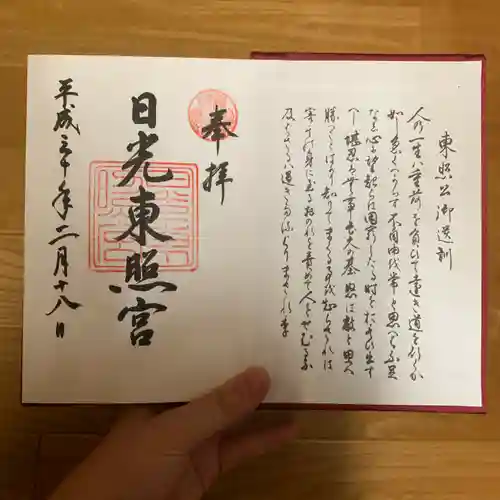 東照公御遺訓
人の一生ハ重荷を負ひて遠き道を行くか
如し急くへからす不自由を常と思へハ不足
なし心に望起らは困窮したる時を思ひ出す
へし堪忍ハ無事長久の基怒は敵と思へ
勝つことはかり知りてまくる事を知らされは
害其身に至るおのれを責めて人をせむるな
及はさるハ過きたるよりまされり
奉拝
日光東照宮
平成三十年二月十八日